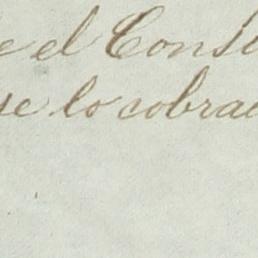 e el Cons
se lo cobra